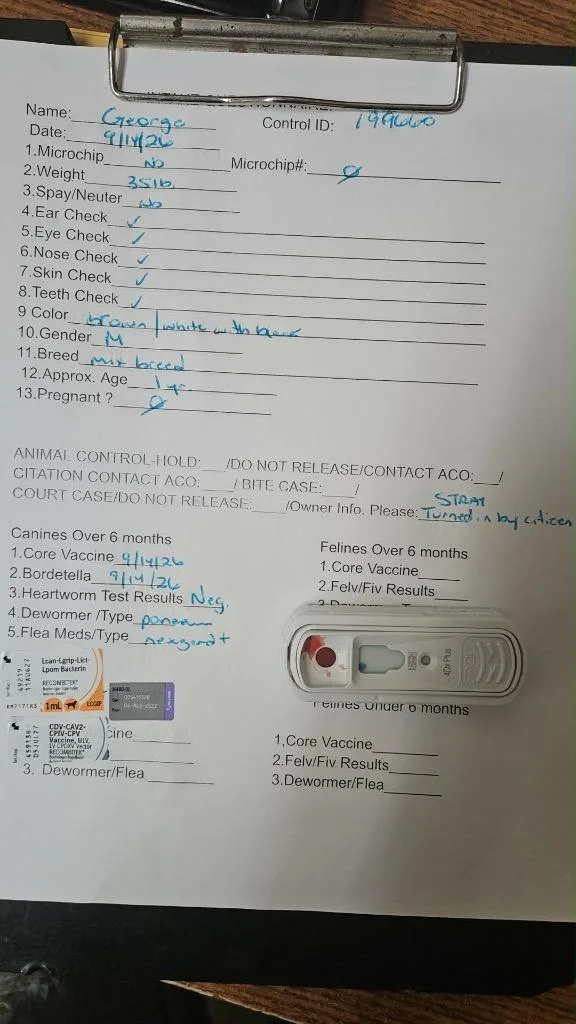 Name: George
Control ID: 199660
Date: 9/14/26
1.Microchip No Microchip#: ∅
2.Weight 35lb.
3.Spay/Neuter No
4.Ear Check ✓
5.Eye Check ✓
6.Nose Check ✓
7.Skin Check ✓
8.Teeth Check ✓
9 Color brown/white with black
10.Gender M
11.Breed mix breed
12.Approx. Age 1yr.
13.Pregnant ? ∅
ANIMAL CONTROL-HOLD:___/DO NOT RELEASE/CONTACT ACO:___/
CITATION CONTACT ACO:____/ BITE CASE:____/
COURT CASE/DO NOT RELEASE:____/Owner Info. Please: STRAY Turned in by citizen
Canines Over 6 months
1.Core Vaccine 9/14/26
2.Bordetella 9/14/26
3.Heartworm Test Results Neg.
4.Dewormer /Type
5.Flea Meds/Type nexgard+
Felines Over 6 months
1.Core Vaccine
2.Felv/Fiv Results
4Dx Plus
Lcan-Lgrip-Lict-
Lpom Bacterin
RECOMBITEK®
1mL
49219
11AUG27
CDV-CAV2-
CPIV-CPV
Vaccine, MLV,
RECOMBITEK®
05JUL27
cine
3. Dewormer/Flea
Felines Under 6 months
1,Core Vaccine
2.Felv/Fiv Results
3.Dewormer/Flea